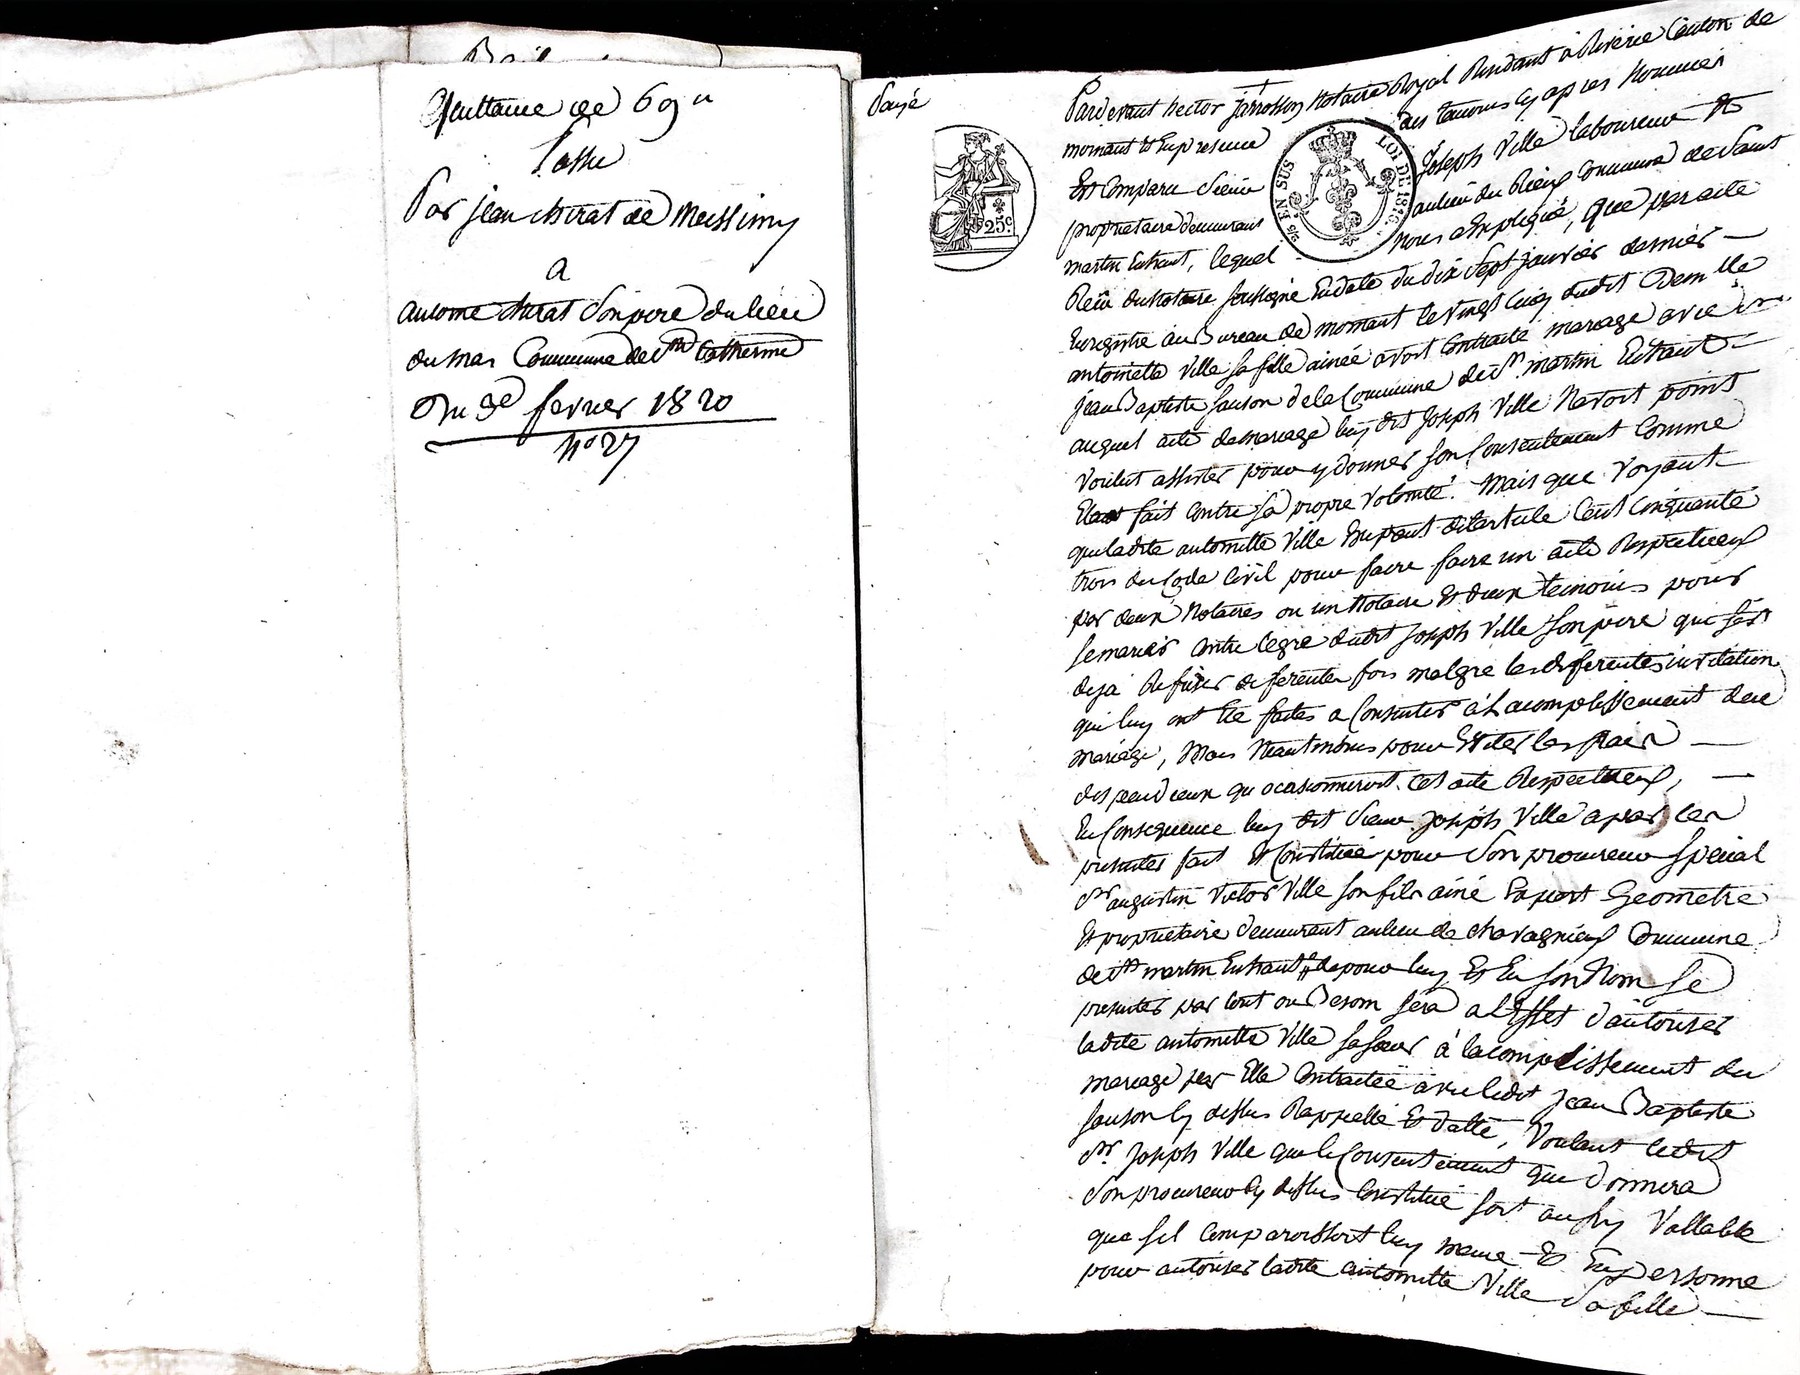 Quittance de 69 u
Passée
Par jean chirat de Messimy
A
antoine chirat Son pere du lieu
du mas Commune de Ste Catherine
Du 3e fevrier 1820
No 27
Payé
25c
EN SUS
LOI DE 1816
Pardevant hector jarrosson Notaire Royal Residant à Riverie Canton de
mornant Et En presence des temoins cy apres Nommés
Est Comparu Sieur Joseph Ville laboureur Et
proprietaire demeurant au lieu du Rieux Commune de Saint
martin Enhaut, lequel nous a Expliqué, Que par acte
Reçu du Notaire Soussigné En date du dix Sept janvier dernier
Enregistré au Bureau de mornant le vingt cinq dudit Demlle
antoinette Ville Sa fille ainée avoit Contracté mariage avec Sr
jean Baptiste Sauson de la Commune de St martin Enhaut
auquel acte de mariage luy dit Joseph Ville N'avoit point
voulut assister pour y donner Son Consentement Comme
Etant fait Contre Sa propre Volonté. Mais que Voyant
que ladite antoinette Ville En vertu de l'article Cent Cinquante
trois du Code Civil pour faire faire un acte Respectueux
par deux Notaires ou un Notaire Et deux temoins pour
Se marier Contre le gré dudit Joseph Ville Son pere qui S'est
deja Refuser diferentes fois malgré les diferentes invitation
qui luy ont Eté faites a Consentir à L'acomplissement de ce
mariage, Mais Neantmoins pour Eviter les frais
dispendieux qu'ocasionneroit Cet acte Respectueux,
En Consequence luy dit Sieur Joseph Ville a par Ces
presentes fait Et Constitué pour Son procureur Special
Sr augustin Victor Ville Son fils ainé Expert Geometre
Et proprietaire demeurant au lieu de Chavagnieux Commune
de St martin Enhaut de pour luy Et En Son Nom Se
presenter par tout ou Besoin Sera a L'Effet d'autoriser
ladite antoinette Ville Sa Sœur à L'acomplissement du
mariage par Elle Contracté avec ledit jean Baptiste
Sauson Cy dessus Rappellé Et datté, Voulant ledit
Sr Joseph Ville que le Consentement que donnera
Son procureur Cy dessus Constitué Soit aussy Vallable
que Sil Comparoissoit luy meme Et En personne
pour autoriser ladite antoinette Ville Sa fille